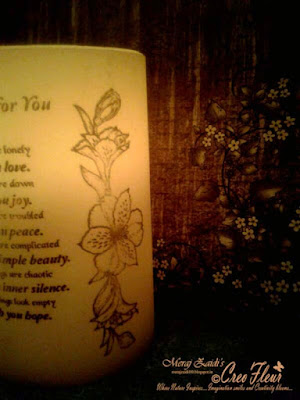 for You
lonely
love.
are down
you joy.
are troubled
peace.
are complicated
simple beauty.
are chaotic
inner silence.
look empty
you hope.
Meraj Zaidi's
©Creo Fleur
Where Nature Inspires... Imagination smiles and Creativity blooms...